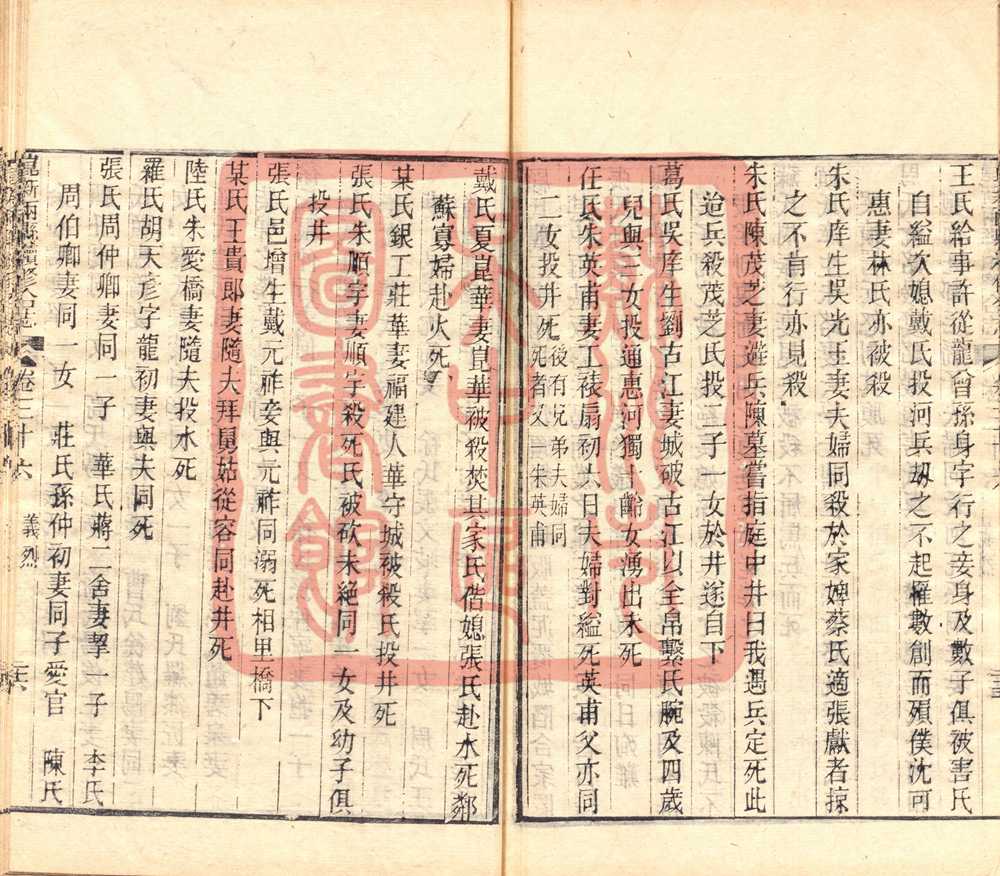 王氏給事許從龍曾孫身字行之妾身及數子俱被害氏
自縊次媳戴氏投河兵刼之不起罹數創而殞僕沈可
惠妻林氏亦被殺
朱氏庠生吳光玉妻夫婦同殺於家婢蔡氏適張獻者掠
之不肯行亦見殺
朱氏陳茂芝妻避兵陳墓嘗指庭中井曰我遇兵定死此
迨兵殺茂芝氏投二子一女於井遂自下
葛氏吳庠生劉古江妻城破古江以全帛繫氏腕及四歲
兒與三女投通惠河獨十齡女湧出未死
任氏朱英甫妻工裱扇初六日夫婦對縊死英甫父亦同
二女投井死後有兄弟夫婦同
死者又一朱英甫
戴氏夏崑華妻崑華被殺焚其家氏偕媳張氏赴水死鄰
蘇寡婦赴火死
某氏銀工莊華妻福建人華守城被殺氏投井死
張氏朱順宇妻順宇殺死氏被砍未絕同一女及幼子俱
投井
張氏邑增生戴元祚妾與元祚同溺死相里橋下
某氏王貴郎妻隨夫拜舅姑從容同赴井死
陸氏朱愛橋妻隨夫投水死
羅氏胡天彥字龍初妻與夫同死
張氏周仲卿妻同一子 華氏蔣二舍妻挈一子 李氏
周伯卿妻同一女 莊氏孫仲初妻同子愛官 陳氏
崑新兩縣續修合志 卷三十六 義烈
蘇州市文史圖書館